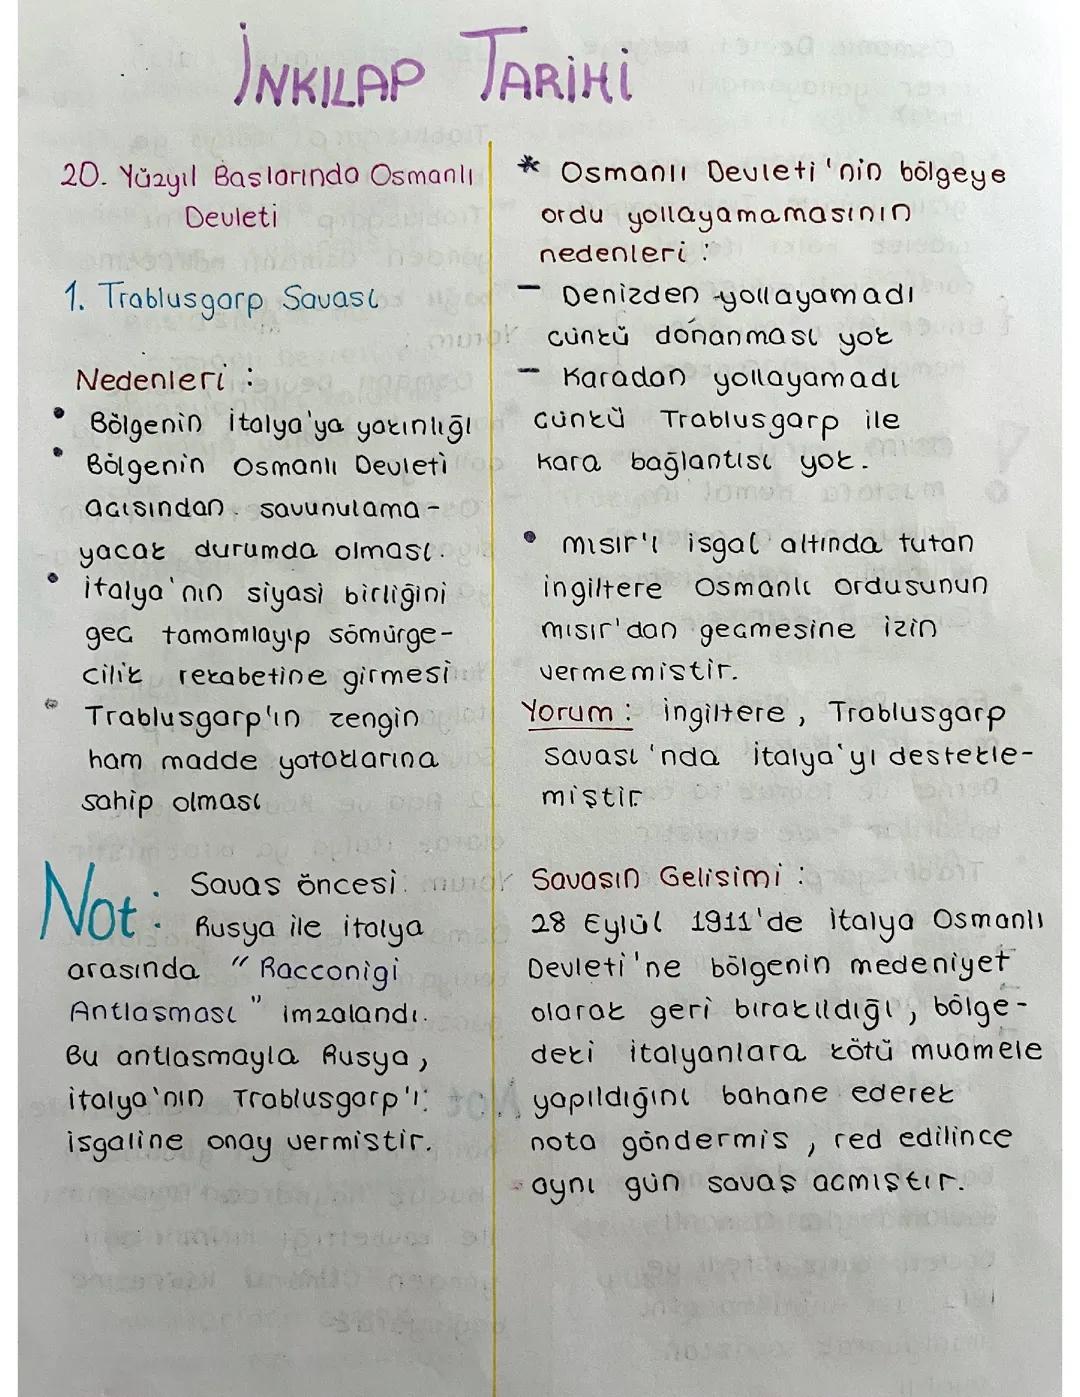 İNKILAP TARİHİ
20. Yüzyıl Baslarında Osmanlı
Devleti
1. Trablusgarp Savası
Nedenleri :
• Bölgenin İtalya'ya yakınlığı
• Bölgenin Osmanlı Devleti
acısından savunulama-
yacak durumda olması.
• italya'nın siyasi birliğini
gec tamamlayıp sömürge-
cilik rekabetine girmesi
• Trablusgarp'ın zengin
ham madde yataklarına
sahip olması
Not: Savas öncesi
Rusya ile italya
arasında "Racconigi
Antlasması" imzalandı.
Bu antlasmayla Rusya,
italya'nın Trablusgarp'ı
isgaline onay vermistir.
* Osmanlı Devleti'nin bölgeye
ordu yollayamamasının
nedenleri :
- Denizden yollayamadı
cünkü donanması yok
- Karadan yollayamadı
cünkü Trablusgarp ile
kara bağlantısı yok.
• mısır'ı isgal altında tutan
ingiltere Osmanlı ordusunun
mısır'dan gecmesine izin
vermemistir.
Yorum : ingiltere, Trablusgarp
Savası'nda italya'yı destekle-
miştir
Savasın Gelisimi :
28 Eylül 1911'de italya Osmanlı
Devleti'ne bölgenin medeniyet
olarak geri bırakıldığı, bölge-
deki italyanlara kötü muamele
yapıldığını bahane ederek
nota göndermis, red edilince
aynı gün savaş acmıştır.